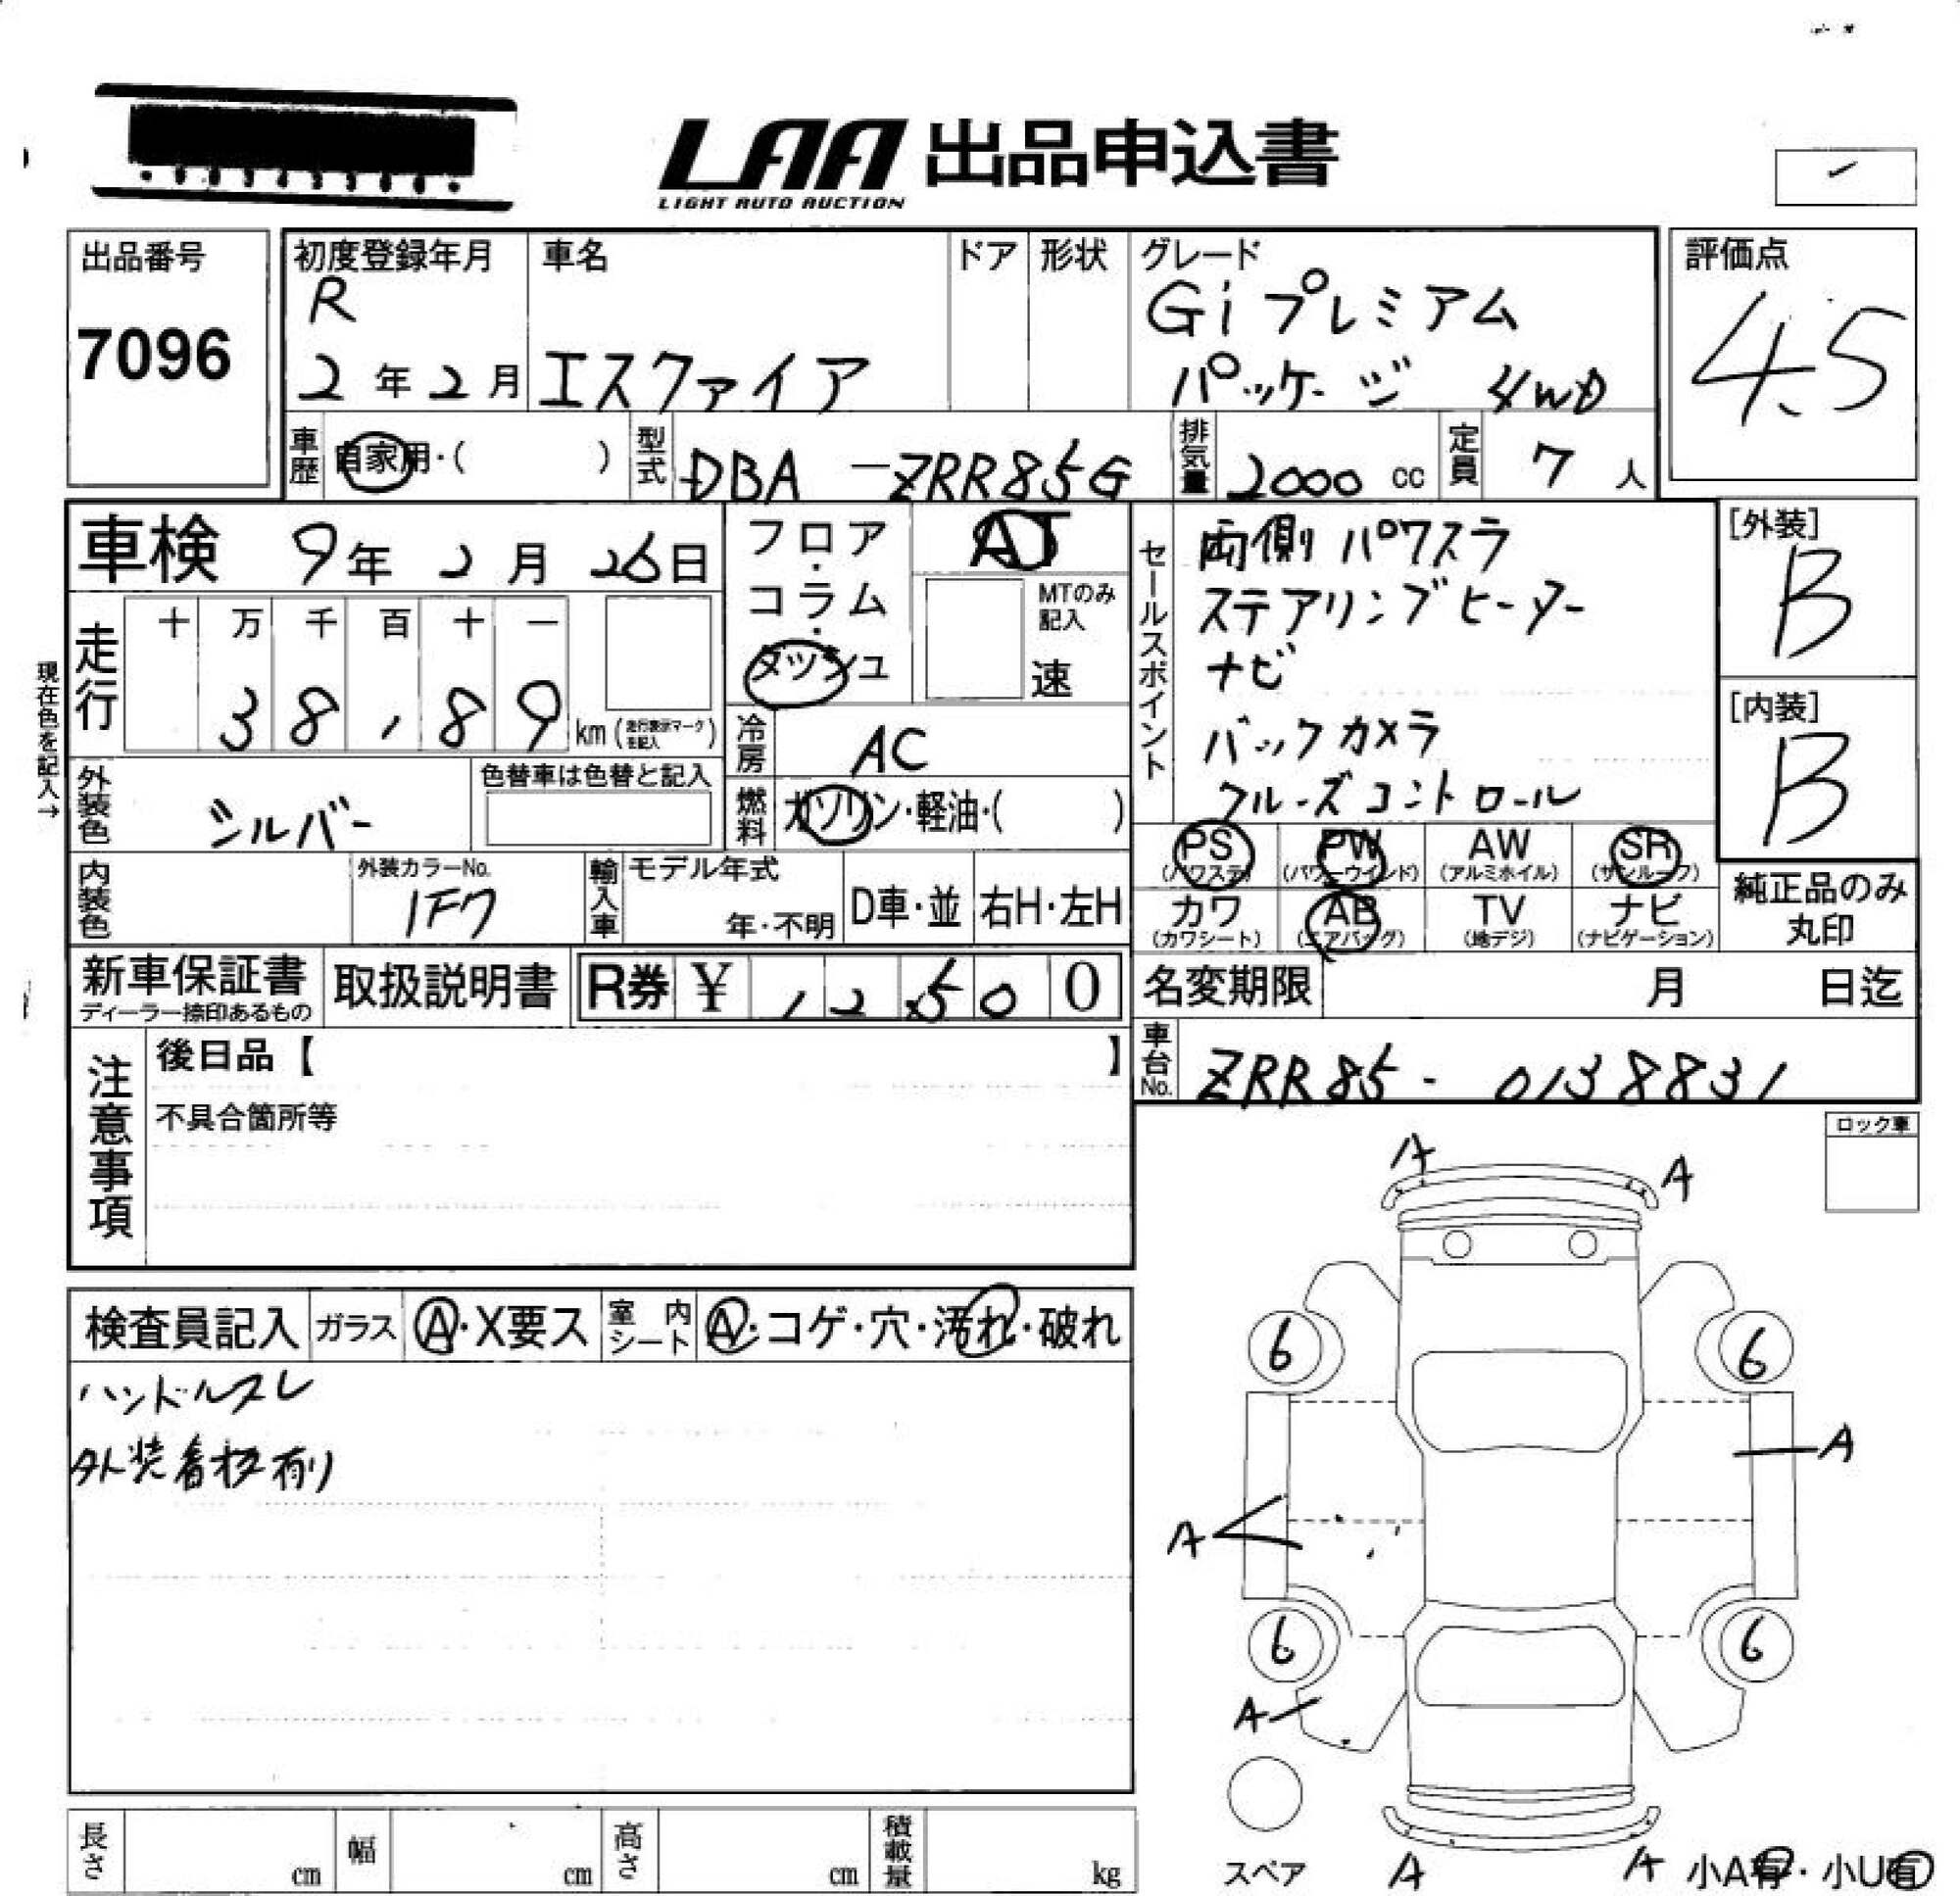 LAA 出品申込書
LIGHT AUTO AUCTION
出品番号
7096
初度登録年月
R
2年2月
車名
エスクァイア
ドア
形状
グレード
Gi プレミアム
パッケージ 4WD
評価点
4.5
車歴
自家用・( )
型式
DBA-ZRR85G
排気量
2000 cc
定員
7 人
車検 9年 2月 26日
フロア・コラム・ダッシュ
AT
MTのみ記入
速
現在色を記入→
走行
十 万 千 百 十 一
3 8 , 8 9 km (走行表示マークを記入)
冷房
AC
燃料
ガソリン・軽油・( )
外装色
シルバー
色替車は色替と記入
内装色
外装カラーNo.
1F7
輸入車
モデル年式
年・不明
D車・並
右H・左H
セールスポイント
両側パワスラ
ステアリングヒーター
ナビ
バックカメラ
クルーズコントロール
[外装]
B
[内装]
B
PS
(パワステ)
PW
(パワーウインド)
AW
(アルミホイル)
SR
(サンルーフ)
カワ
(カワシート)
AB
(エアバッグ)
TV
(地デジ)
ナビ
(ナビゲーション)
純正品のみ
丸印
新車保証書
ディーラー捺印あるもの
取扱説明書
R券 ¥ 1 2 5 0 0
名変期限 月 日迄
車台No.
ZRR85-0138831
注意事項
後日品【 】
不具合箇所等
ロック車
検査員記入
ガラス
A・X要ス
室内シート
A・コゲ・穴・汚れ・破れ
ハンドルスレ
外装着板有り
A
A
6
6
A
A
6
6
A
スペア
A
A
小A有・小U有
長さ cm
幅 cm
高さ cm
積載量 kg